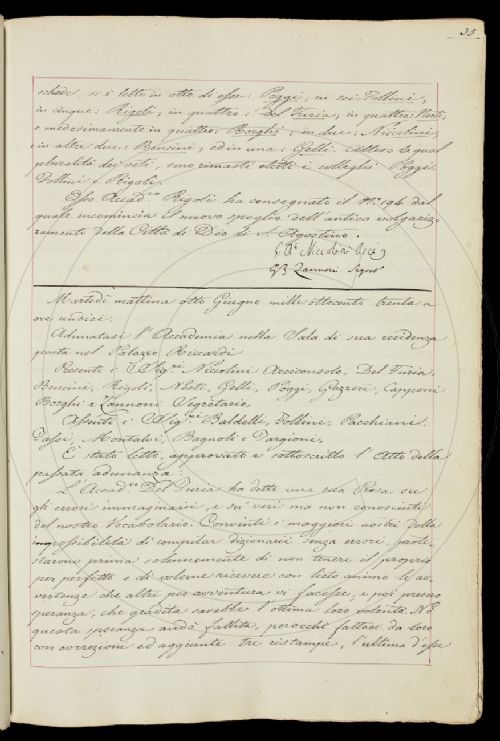 35.
schede, si è letto in otto di esse: Poggi, in sei: Follini,
in cinque: Rigoli, in quattro: Del Furia, in quattro: Nesti,
e medesimamente in quattro: Borghi, in due: Niccolini,
e in altre due: Bencini, ed in una: Gelli. Atteso la qual
pluralità dei voti, sono rimasti eletti i colleghi Poggi,
Follini e Rigoli.
Esso Accad.co Rigoli ha consegnato il N.o 194 dal
quale incomincia il nuovo spoglio dell'antico volgariz-
zamento della Città di Dio di S. Agostino.
G. Ba. Niccolini
GB Zannoni Segr.o
Martedì mattina otto Giugno mille ottocento trenta a
ore undici.
Adunatasi l'Accademia nella Sala di sua residenza
posta nel Palazzo Riccardi
Presenti i Sig.ri Niccolini Arciconsolo, Del Furia,
Bencini, Rigoli, Nesti, Gelli, Poggi, Gazzeri, Capponi
Borghi e Zannoni Segretario.
Assenti i Sig.ri Baldelli, Follini, Pacchiani,
Tassi, Montalvi, Bagnoli e Targioni,
E' stato letto, approvato e sottoscritto l'Atto della
passata adunanza.
L'Accad.co Del Furia ha detto una sua Prosa su
gli errori immaginarii, e su i veri ma non conosciuti
del nostro Vocabolario. Convinti i maggiori nostri della
impossibilità di compilar dizionarii senza errori, prote-
starono prima solennemente di non tenere il proprio
per perfetto e di volerne ricevere con lieto animo le av-
vertenze che altri per avventura vi facesse; e poi presero
speranza, che gradita sarebbe l'ottima loro volontà. Nè
questa speranza andò fallita, perocchè fattesi da loro
con correzioni ed aggiunte tre ristampe, l'ultima d'esse